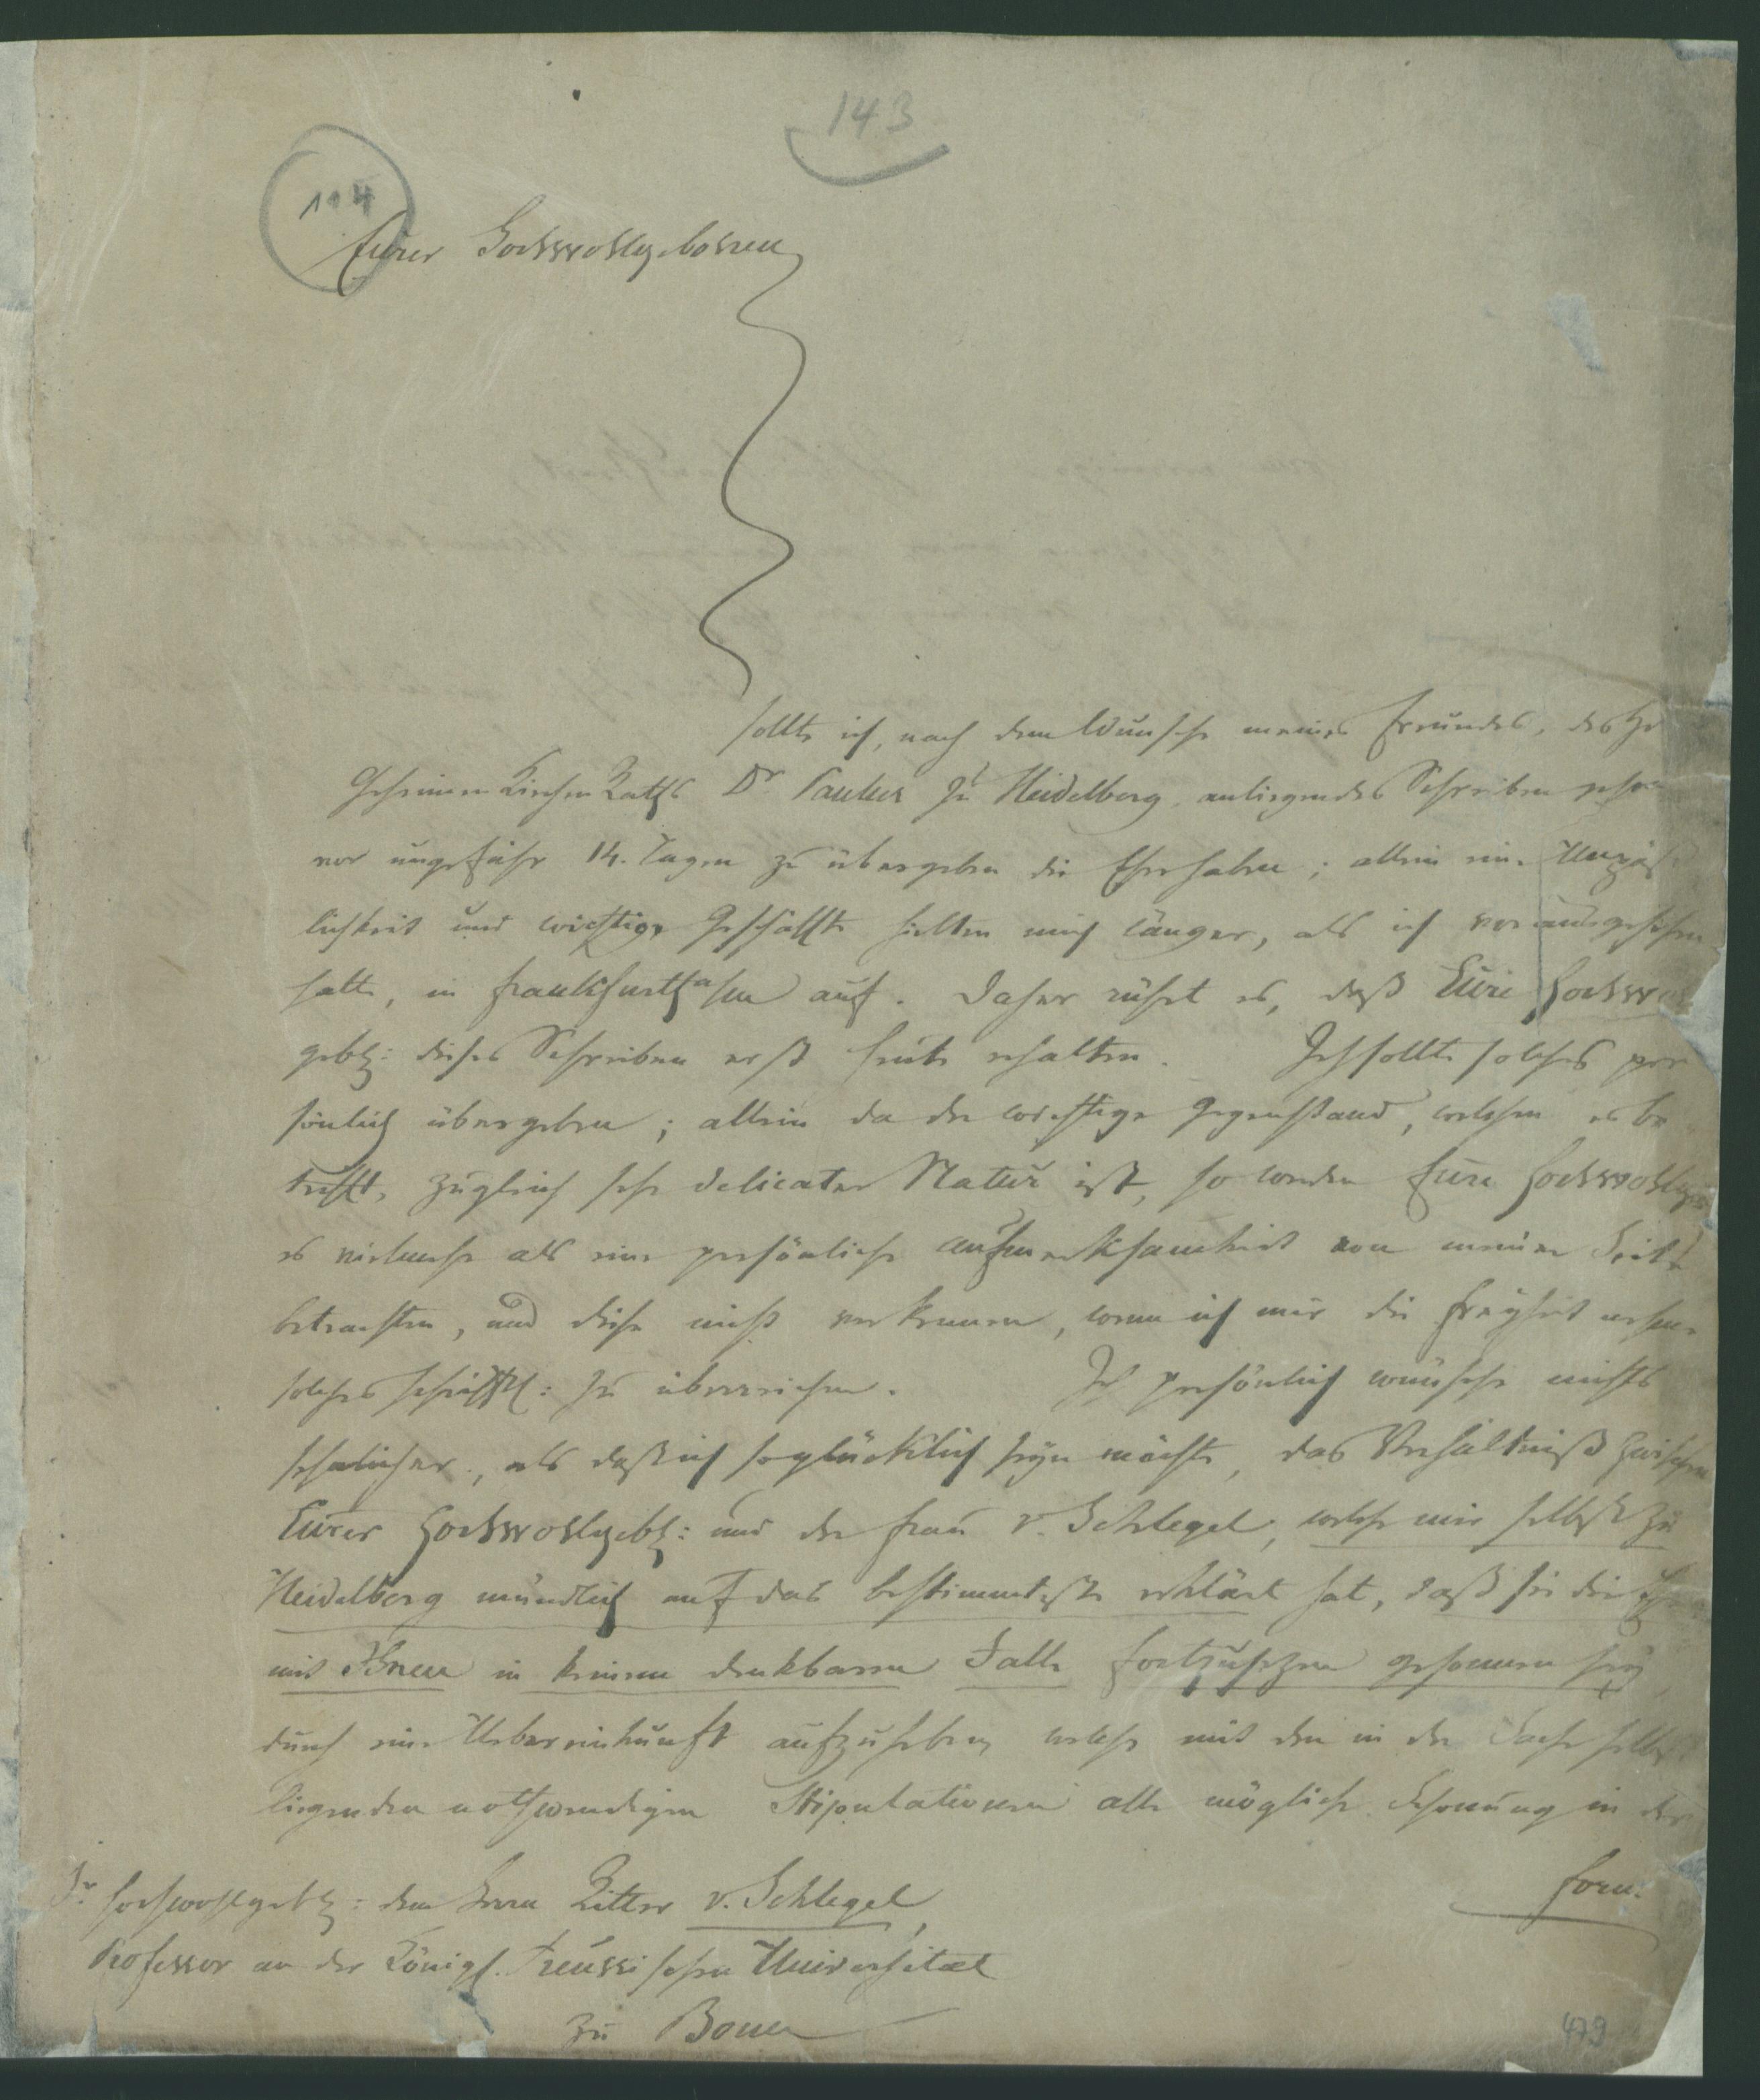 143
114
Eurer Hochwohlgebohren
sollte ich, nach dem Wunsche meines Freundes, des H
Geheimen KirchenRaths Dr Paulus zu Heidelberg, anliegendes Schreiben schon
vor ungefähr 14. Tagen zu übergeben die Ehre haben; allein eine Unpäß
lichkeit und wichtige Geschäffte hielten mich länger, als ich vorausgesehen
hatte, in Frankfurth auf. Daher rührt es, daß Eure Hochwohl
gebh: dieses Schreiben erst heute erhalten. Ich sollte solches per
sönlich übergeben; allein da der wichtige Gegenstand, welchen es be
trifft, zugleich sehr delicater Natur ist, so werden Eure Hochwohlgeb
es vielmehr als eine persönliche Aufmerksamkeit von meiner Seite
betrachten, und diese nicht verkennen, wenn ich mir die Freyheit nehme
solches schrifftl: zu überreichen. Ich persönlich wünsche nichts
sehnlicher, als daß ich so glücklich seyn möchte, das Verhältniß zwischen
Eurer Hochwohlgebh: und der Frau v. Schlegel, welche mir selbst zu
Heidelberg mündlich auf das bestimmteste erklärt hat, daß sie die Ehe
mit Ihnen in keinem denkbaren Falle fortzusezen gesonnen sey
durch eine Uebereinkunft aufzuheben, welche mit den in der Sache selbst
liegenden nothwendigen Stipulationen alle mögliche Schonung in der
Form
Sr Hochwohlgebh: dem Herrn Ritter v. Schlegel,
Professor an der Königl. Preussischen Universitaet
zu Bonn
479